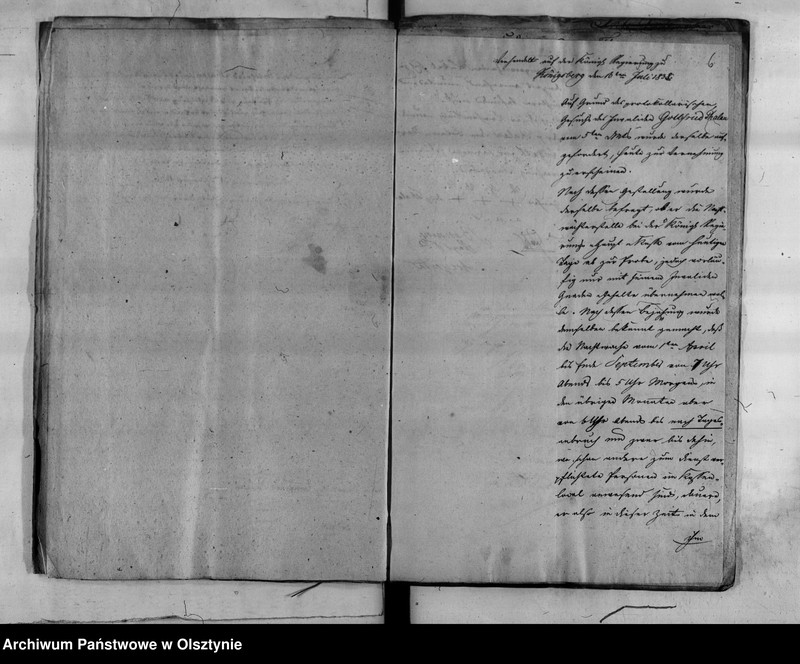 6
Verhandelt auf der Königl Regierung zu
Königsberg den 13ten Juli 183
Auf Grund des protokollarischen
Gesuchs des Invaliden Gottfried
vom 5ten d Mts wurde derselbe auf-
gefordert, heute zur Vernehmung
zu erscheinen.
Nach dessen Gestellung wurde
derselbe befragt, ob er die Nacht-
wächterstelle bei der Königl Regie-
rungs Haupt Kasse vom heutigen
Tage ab zur Probe, jedoch vorläu-
fig nur mit seinem Invaliden
Gnaden Gehalte übernehmen wol-
le. Nach dessen Bejahung wurde
demselben bekannt gemacht, daß
die Nachtwache vom 1ten April
bis Ende September von 7 Uhr
Abends bis 5 Uhr Morgens, in
den übrigen Monaten aber
von 6 Uhr Abends bis nach Tages-
anbruch und zwar bis dahin,
wo schon andere zum Dienst ver-
pflichtete Personen im Kassen-
local anwesend sind, dauere,
er also in dieser Zeit in dem
Archiwum Państwowe w Olsztynie